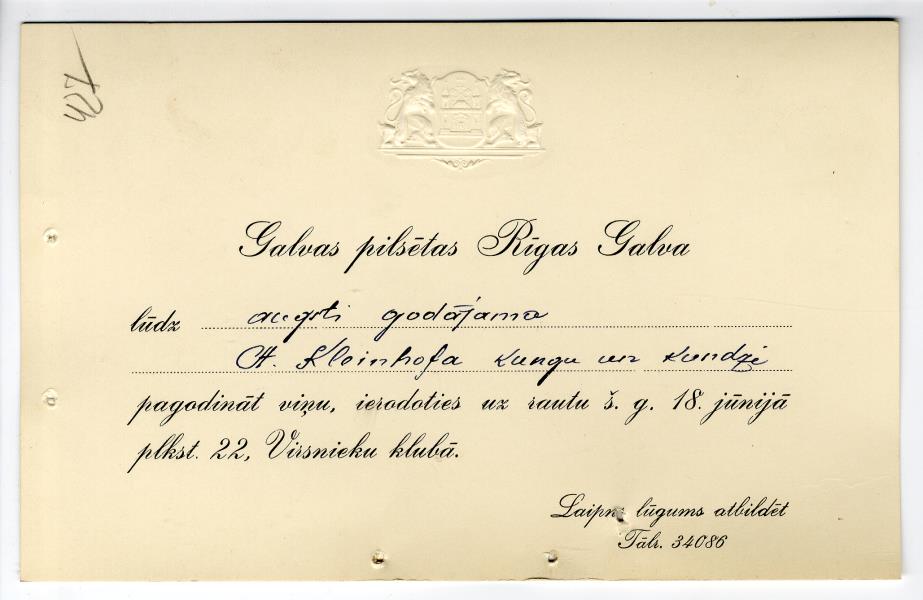 Galvas pilsētas Rīgas Galva
lūdz augsti godājamo
A. Kleinhofa kungu un kundzi
pagodināt viņu, ierodoties uz rautu š. g. 18. jūnijā
plkst. 22, Virsnieku klubā.
Laipns lūgums atbildēt
Tālr. 34086